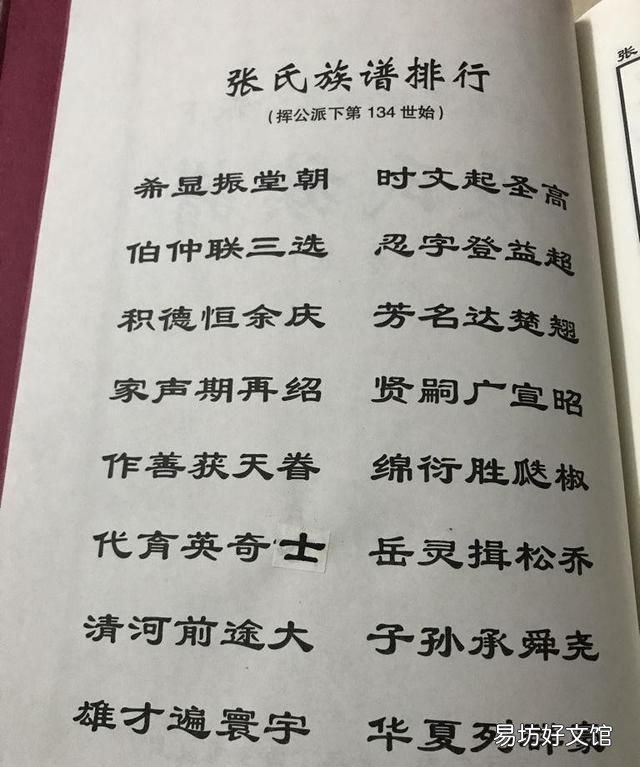 张氏族谱排行
(挥公派下第134世始)
希显振堂朝 时文起圣高
伯仲联三选 忍字登益超
积德恒余庆 芳名达楚翘
家声期再绍 贤嗣广宣昭
作善获天眷 绵衍胜瓞椒
代育英奇士 岳灵揖松乔
清河前途大 子孙承舜尧
雄才遍寰宇 华夏列群豪
张
易坊好文馆